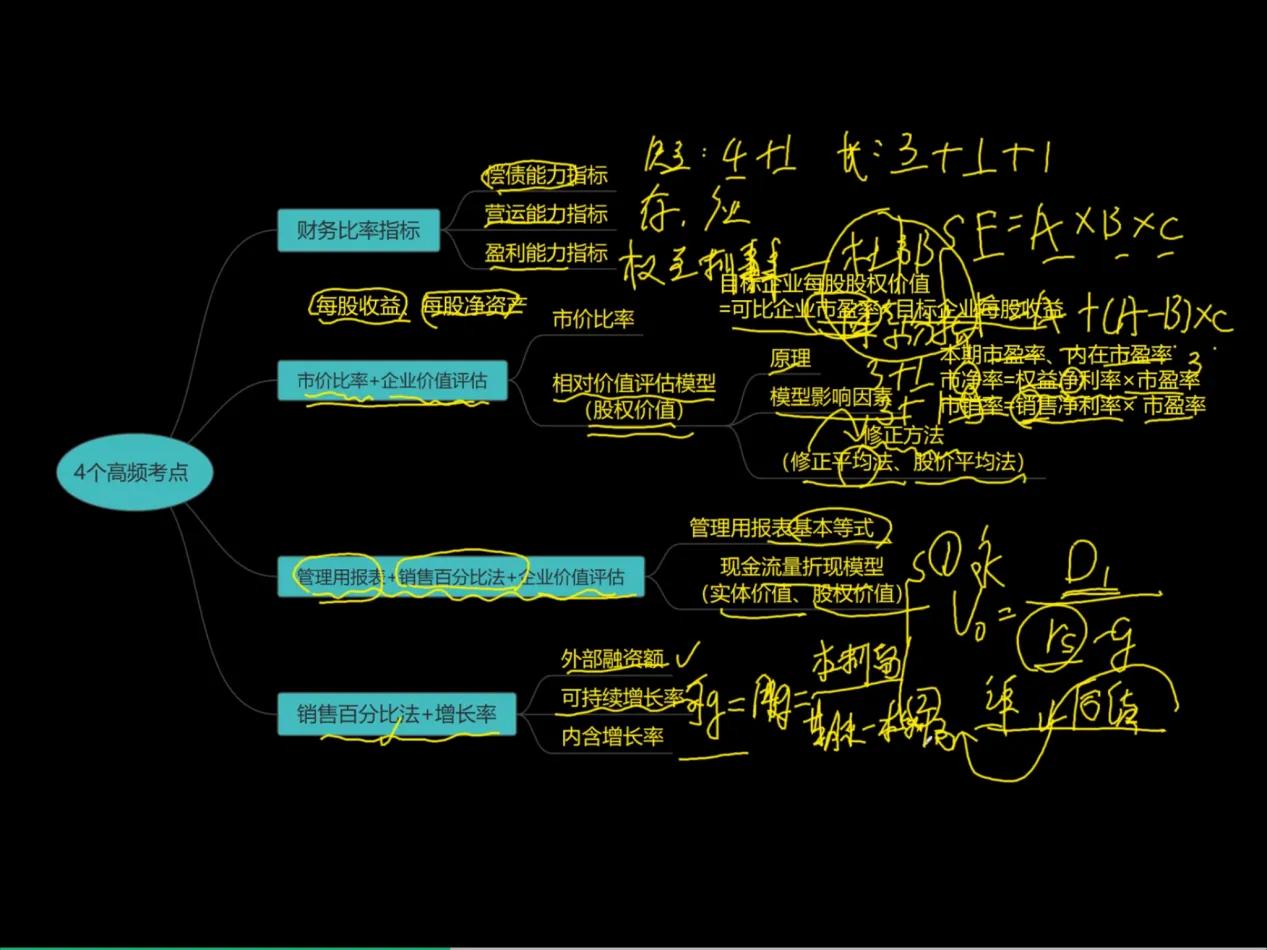 4个高频考点
财务比率指标
偿债能力指标
短:4+1 长:3+1+1
营运能力指标
存、应
盈利能力指标
权 净利率 — 杜邦
F=A×B×C
每股收益、每股净资产
目标企业每股股权价值
=可比企业市盈率×目标企业每股收益
+(A-B)×C
市价比率+企业价值评估
市价比率
相对价值评估模型
(股权价值)
原理
本期市盈率、内在市盈率
3+1
市净率=权益净利率×市盈率
模型影响因素
市销率=销售净利率× 市盈率
修正方法
(修正平均法、股价平均法)
管理用报表+销售百分比法+企业价值评估
管理用报表基本等式
现金流量折现模型
(实体价值、股权价值)
V₀=D₁/(rs-g)
销售百分比法+增长率
外部融资额✓
可持续增长率
可g=股g=本利留/期末-本利留
内含增长率